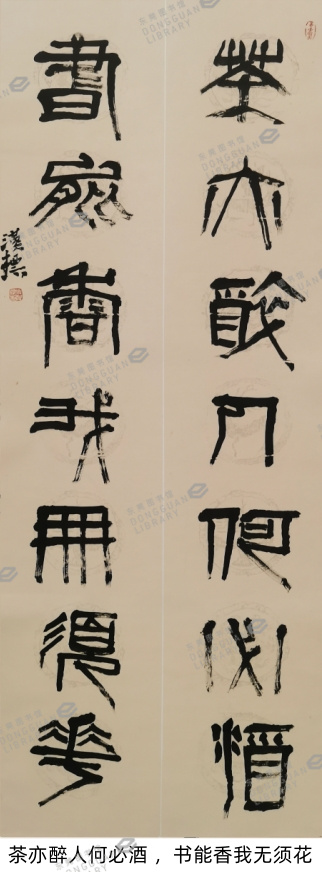 茶亦醉人何必酒
書能香我無須花
漢標
东莞图书馆
DONGGUAN
LIBRARY
茶亦醉人何必酒，书能香我无须花